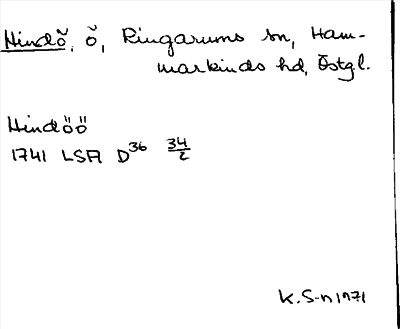 Hindö, ö, Ringarums sn, Ham-
markinds hd, Östgl.
Hindöö
1741 LSA D36 34/2
K.S-n 1971